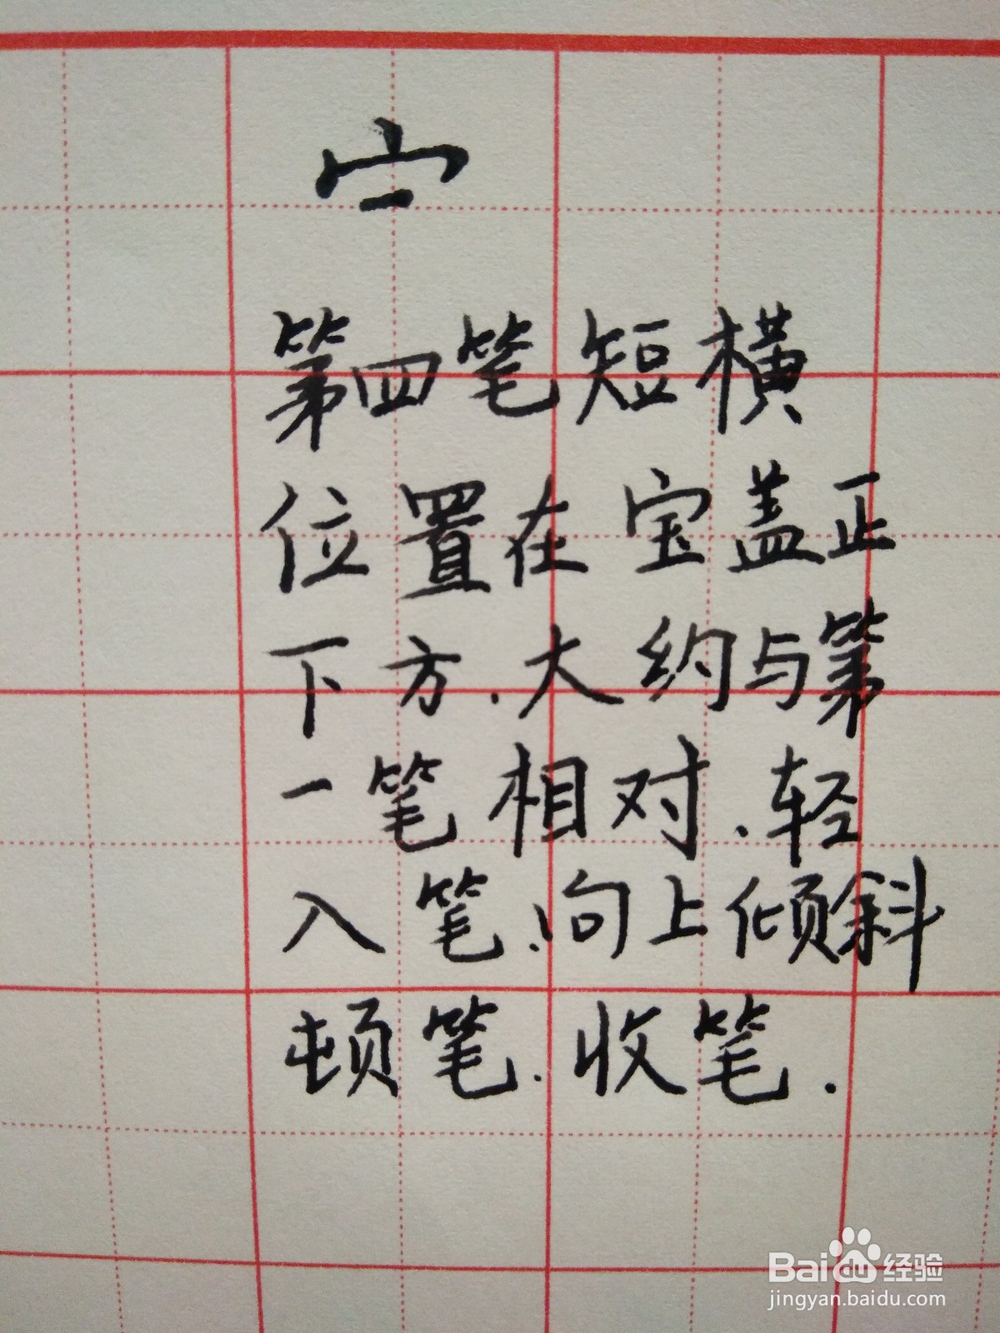 第四笔短横
位置在宝盖正
下方.大约与第
一笔相对.轻
入笔、向上倾斜
顿笔.收笔.
Baidu经验
jingyan.baidu.com